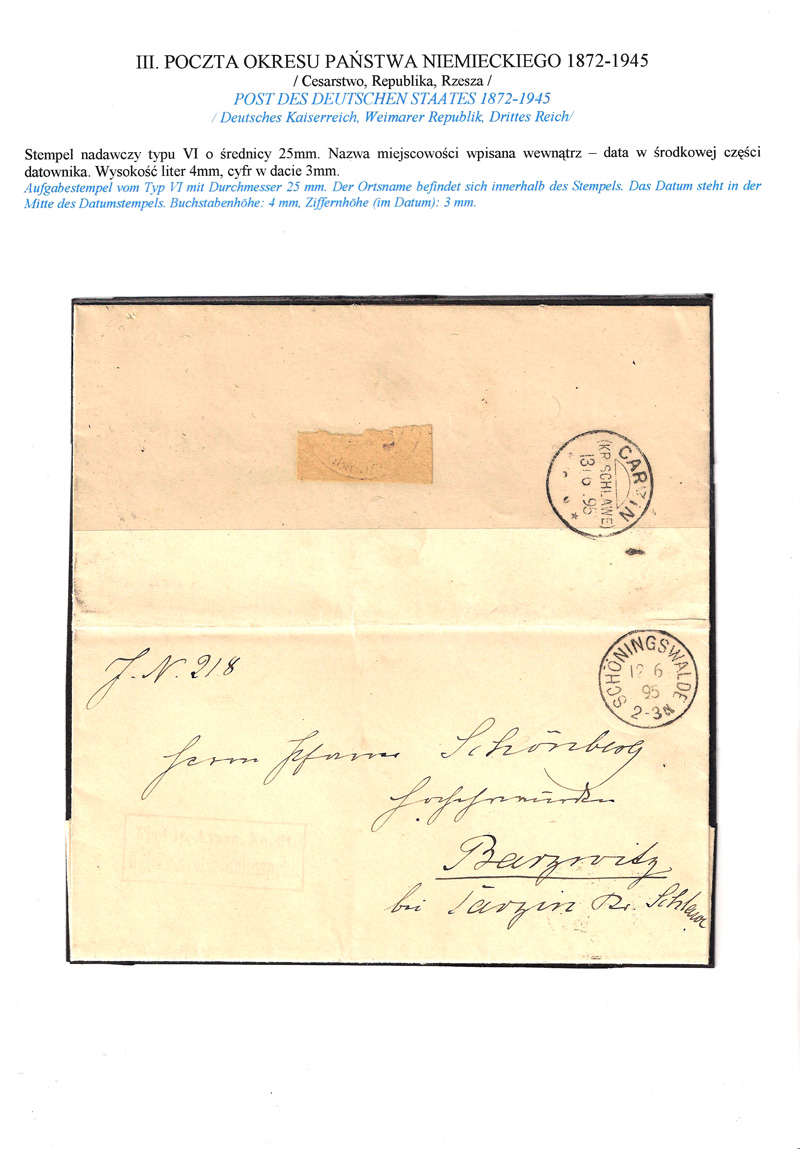 III. POCZTA OKRESU PAŃSTWA NIEMIECKIEGO 1872-1945
/ Cesarstwo, Republika, Rzesza /
POST DES DEUTSCHEN STAATES 1872-1945
/ Deutsches Kaiserreich, Weimarer Republik, Drittes Reich/
Stempel nadawczy typu VI o średnicy 25mm. Nazwa miejscowości wpisana wewnątrz – data w środkowej części
datownika. Wysokość liter 4mm, cyfr w dacie 3mm.
Aufgabestempel vom Typ VI mit Durchmesser 25 mm. Der Ortsname befindet sich innerhalb des Stempels. Das Datum steht in der
Mitte des Datumstempels. Buchstabenhöhe: 4 mm, Ziffernhöhe (im Datum): 3 mm.
CARZIN
(KR. SCHLAWE)
13 6 .95
*
SCHÖNINGSWALDE
12 6
95
2-3N
J. N. 218
Herrn Pfarrer Schönberg
Hochehrwürden
Barzwitz
bei Carzin Kr. Schlawe